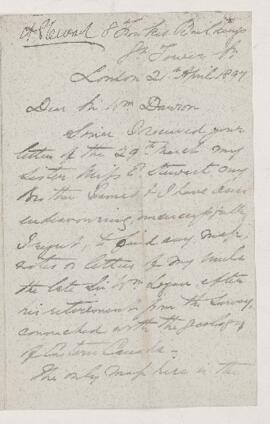 A Stewart 8 Buildings
Gt Tower St
London 2nd April 1897
Dear Sir Wm Dawson
Since I received your
letter of the 29th March my
Sister Miss E Stewart, my
Brother James & I have been
endeavouring, unsuccessfully
I regret, to find any maps,
notes or letters of my Uncle
the late Sir Wm Logan, after
his retirement from the Survey,
connected with the geology
of Eastern Canada.
The only Map here is the